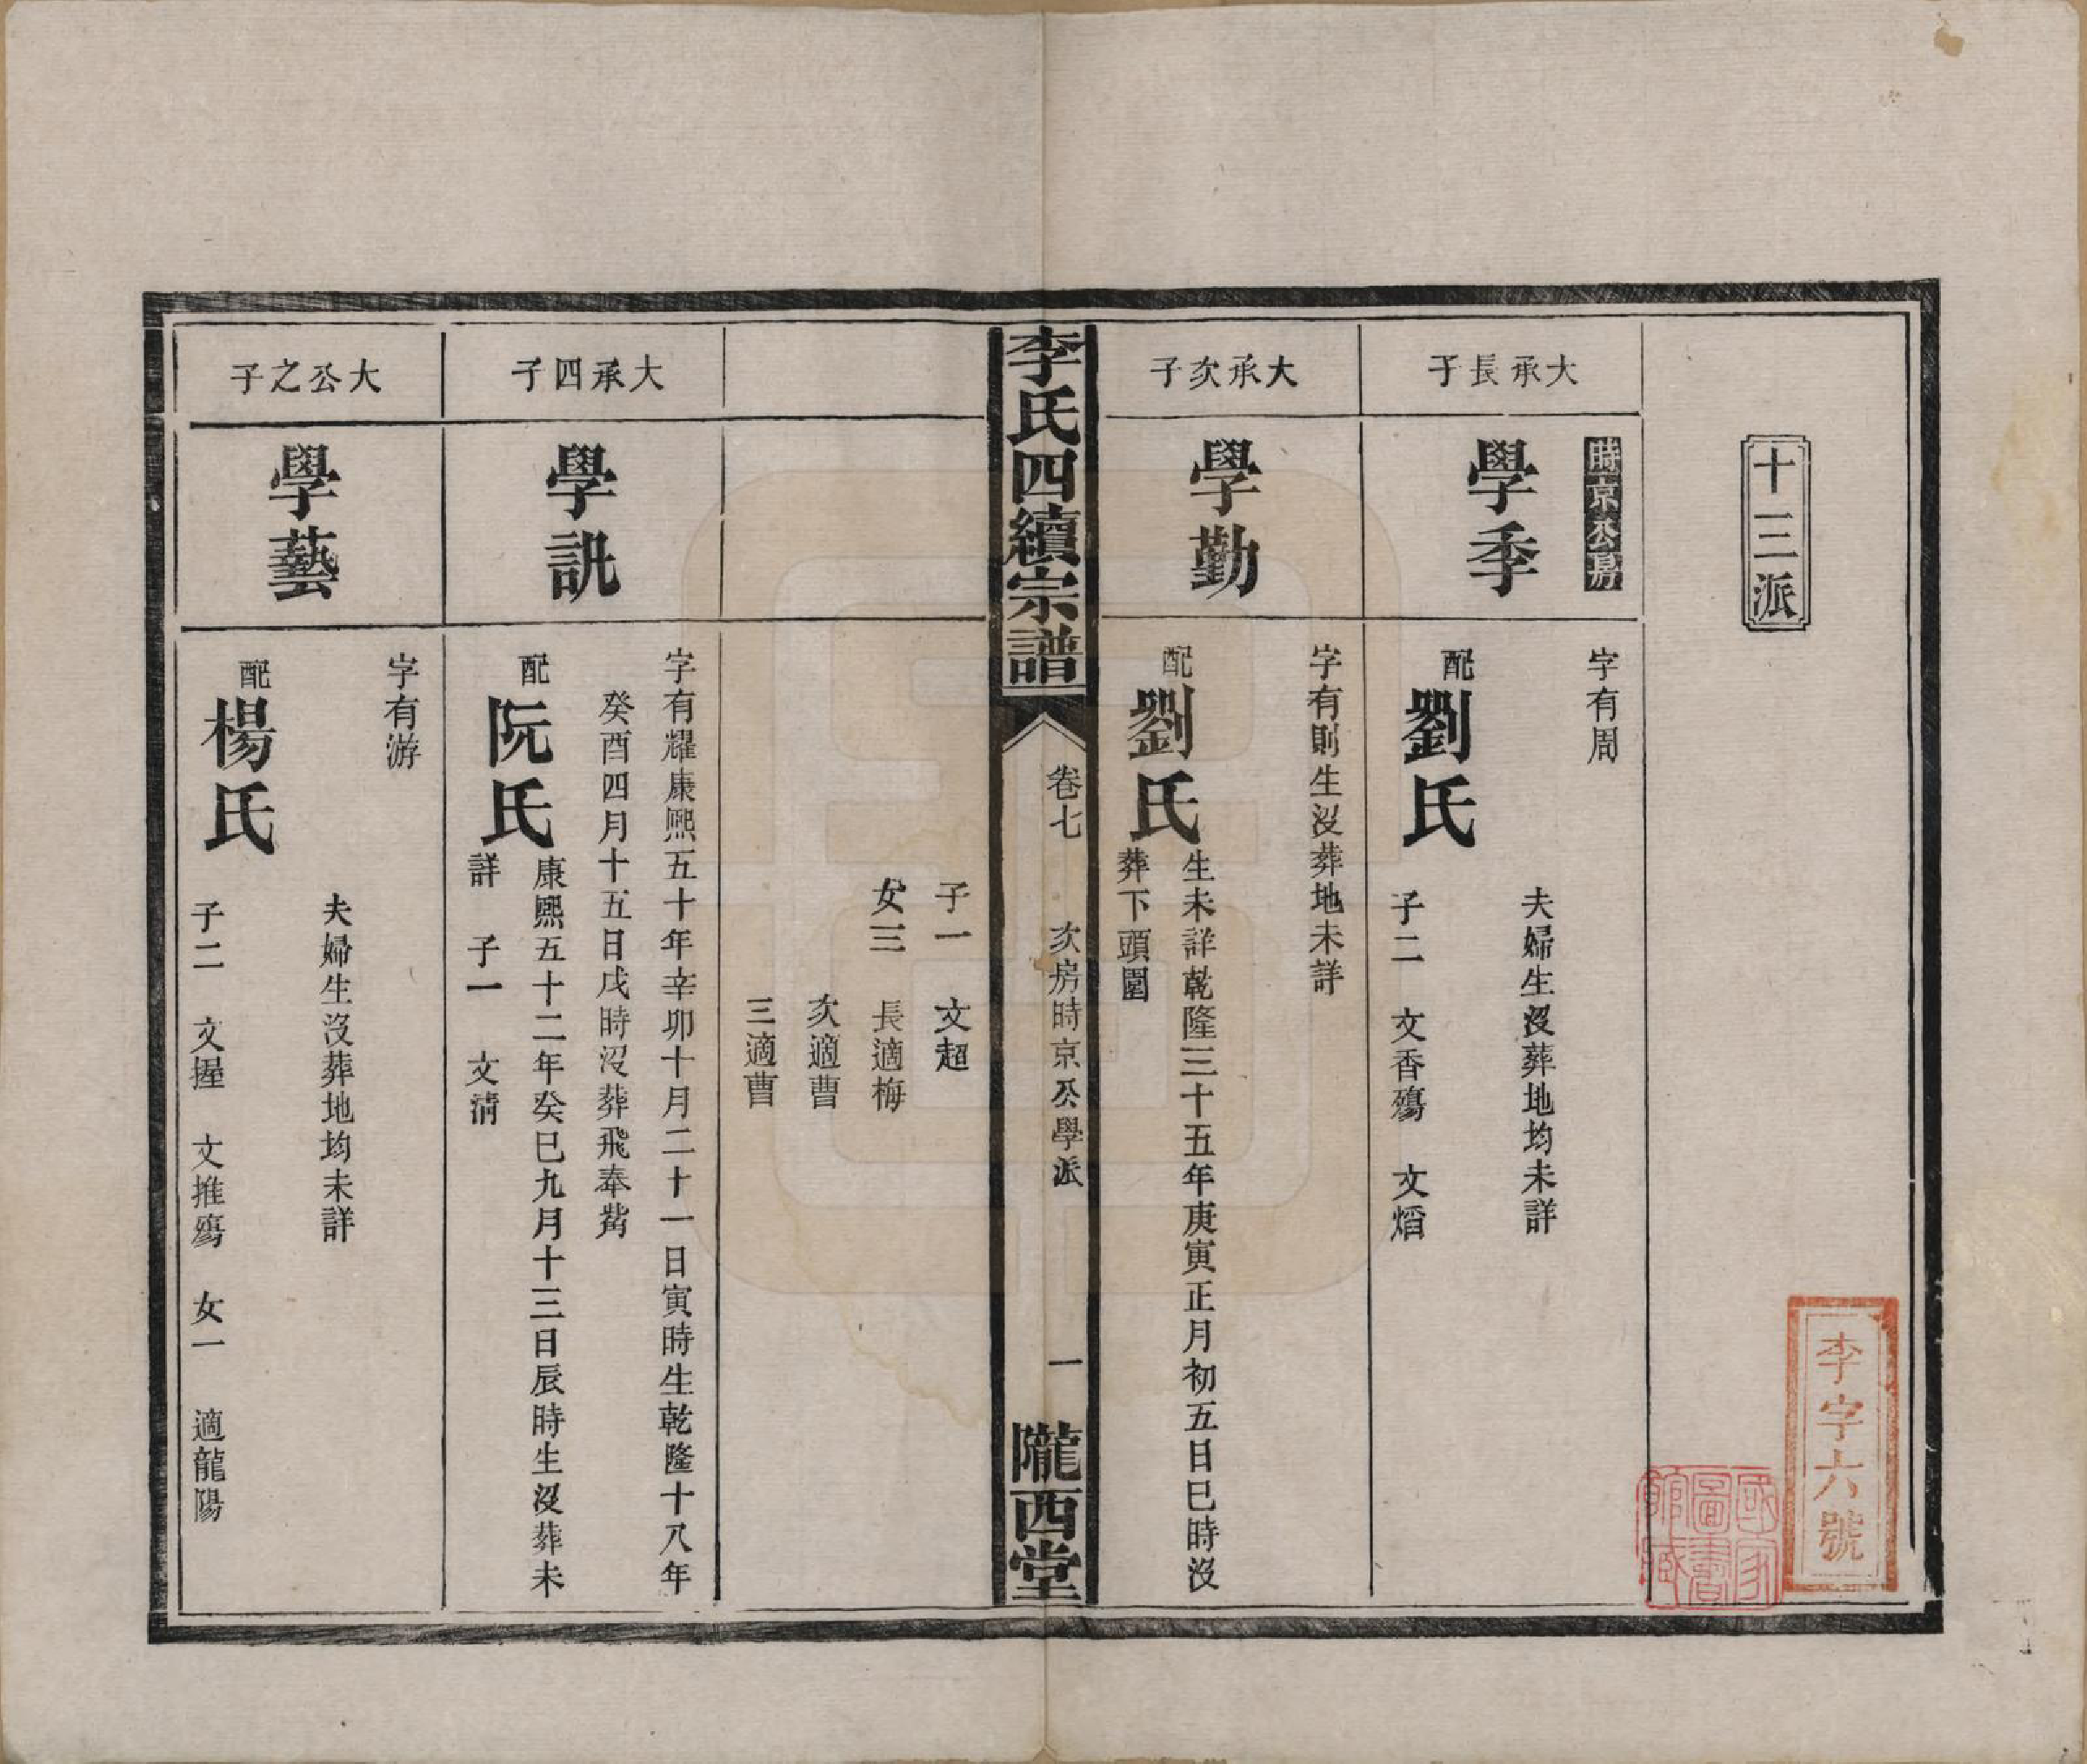 十三派
時京公房
大承長子
學季
字有周
夫婦生沒葬地均未詳
配劉氏
子二　文香殤　文熖
大承次子
學勤
字有則生沒葬地未詳
配劉氏
生未詳乾隆三十五年庚寅正月初五日巳時沒
葬下頭園
李氏四續宗譜
卷七　次房時京公學派
一
隴西堂
子一　文超
女三　長適梅
次適曹
三適曹
大承四子
學訊
字有耀康熙五十年辛卯十月二十一日寅時生乾隆十八年
癸酉四月十五日戌時沒葬飛奉觜
配阮氏
康熙五十二年癸巳九月十三日辰時生沒葬未
詳　子一　文清
大公之子
學藝
字有游
夫婦生沒葬地均未詳
配楊氏
子二　文握　文推殤　女一　適龍陽
李字六號
國家圖書館藏